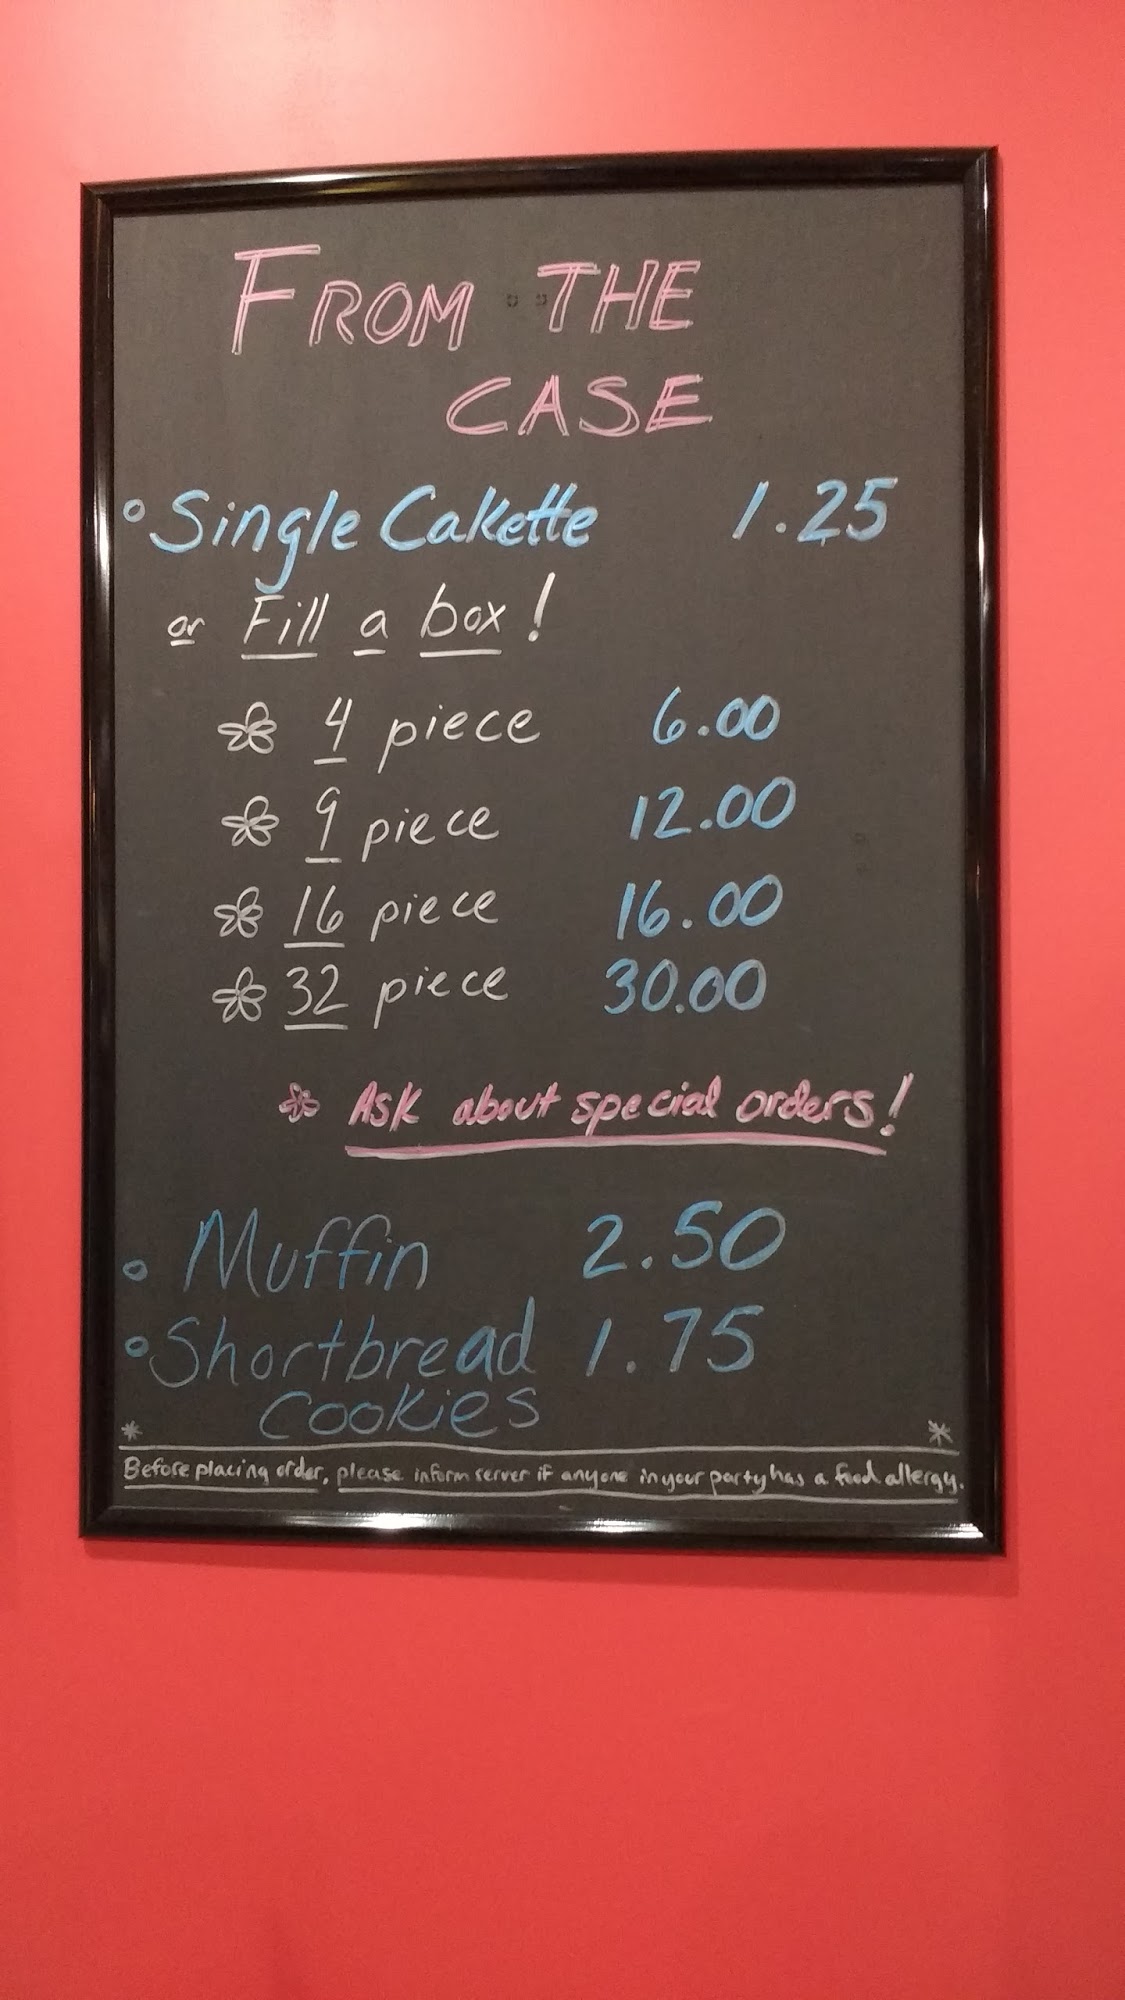 FROM THE
CASE
Single Cakette 1.25
or Fill a box!
4 piece 6.00
9 piece 12.00
16 piece 16.00
32 piece 30.00
* Ask about special orders!
Muffin 2.50
Shortbread 1.75
Cookies
* *
Before placing order, please inform server if anyone in your party has a food allergy.